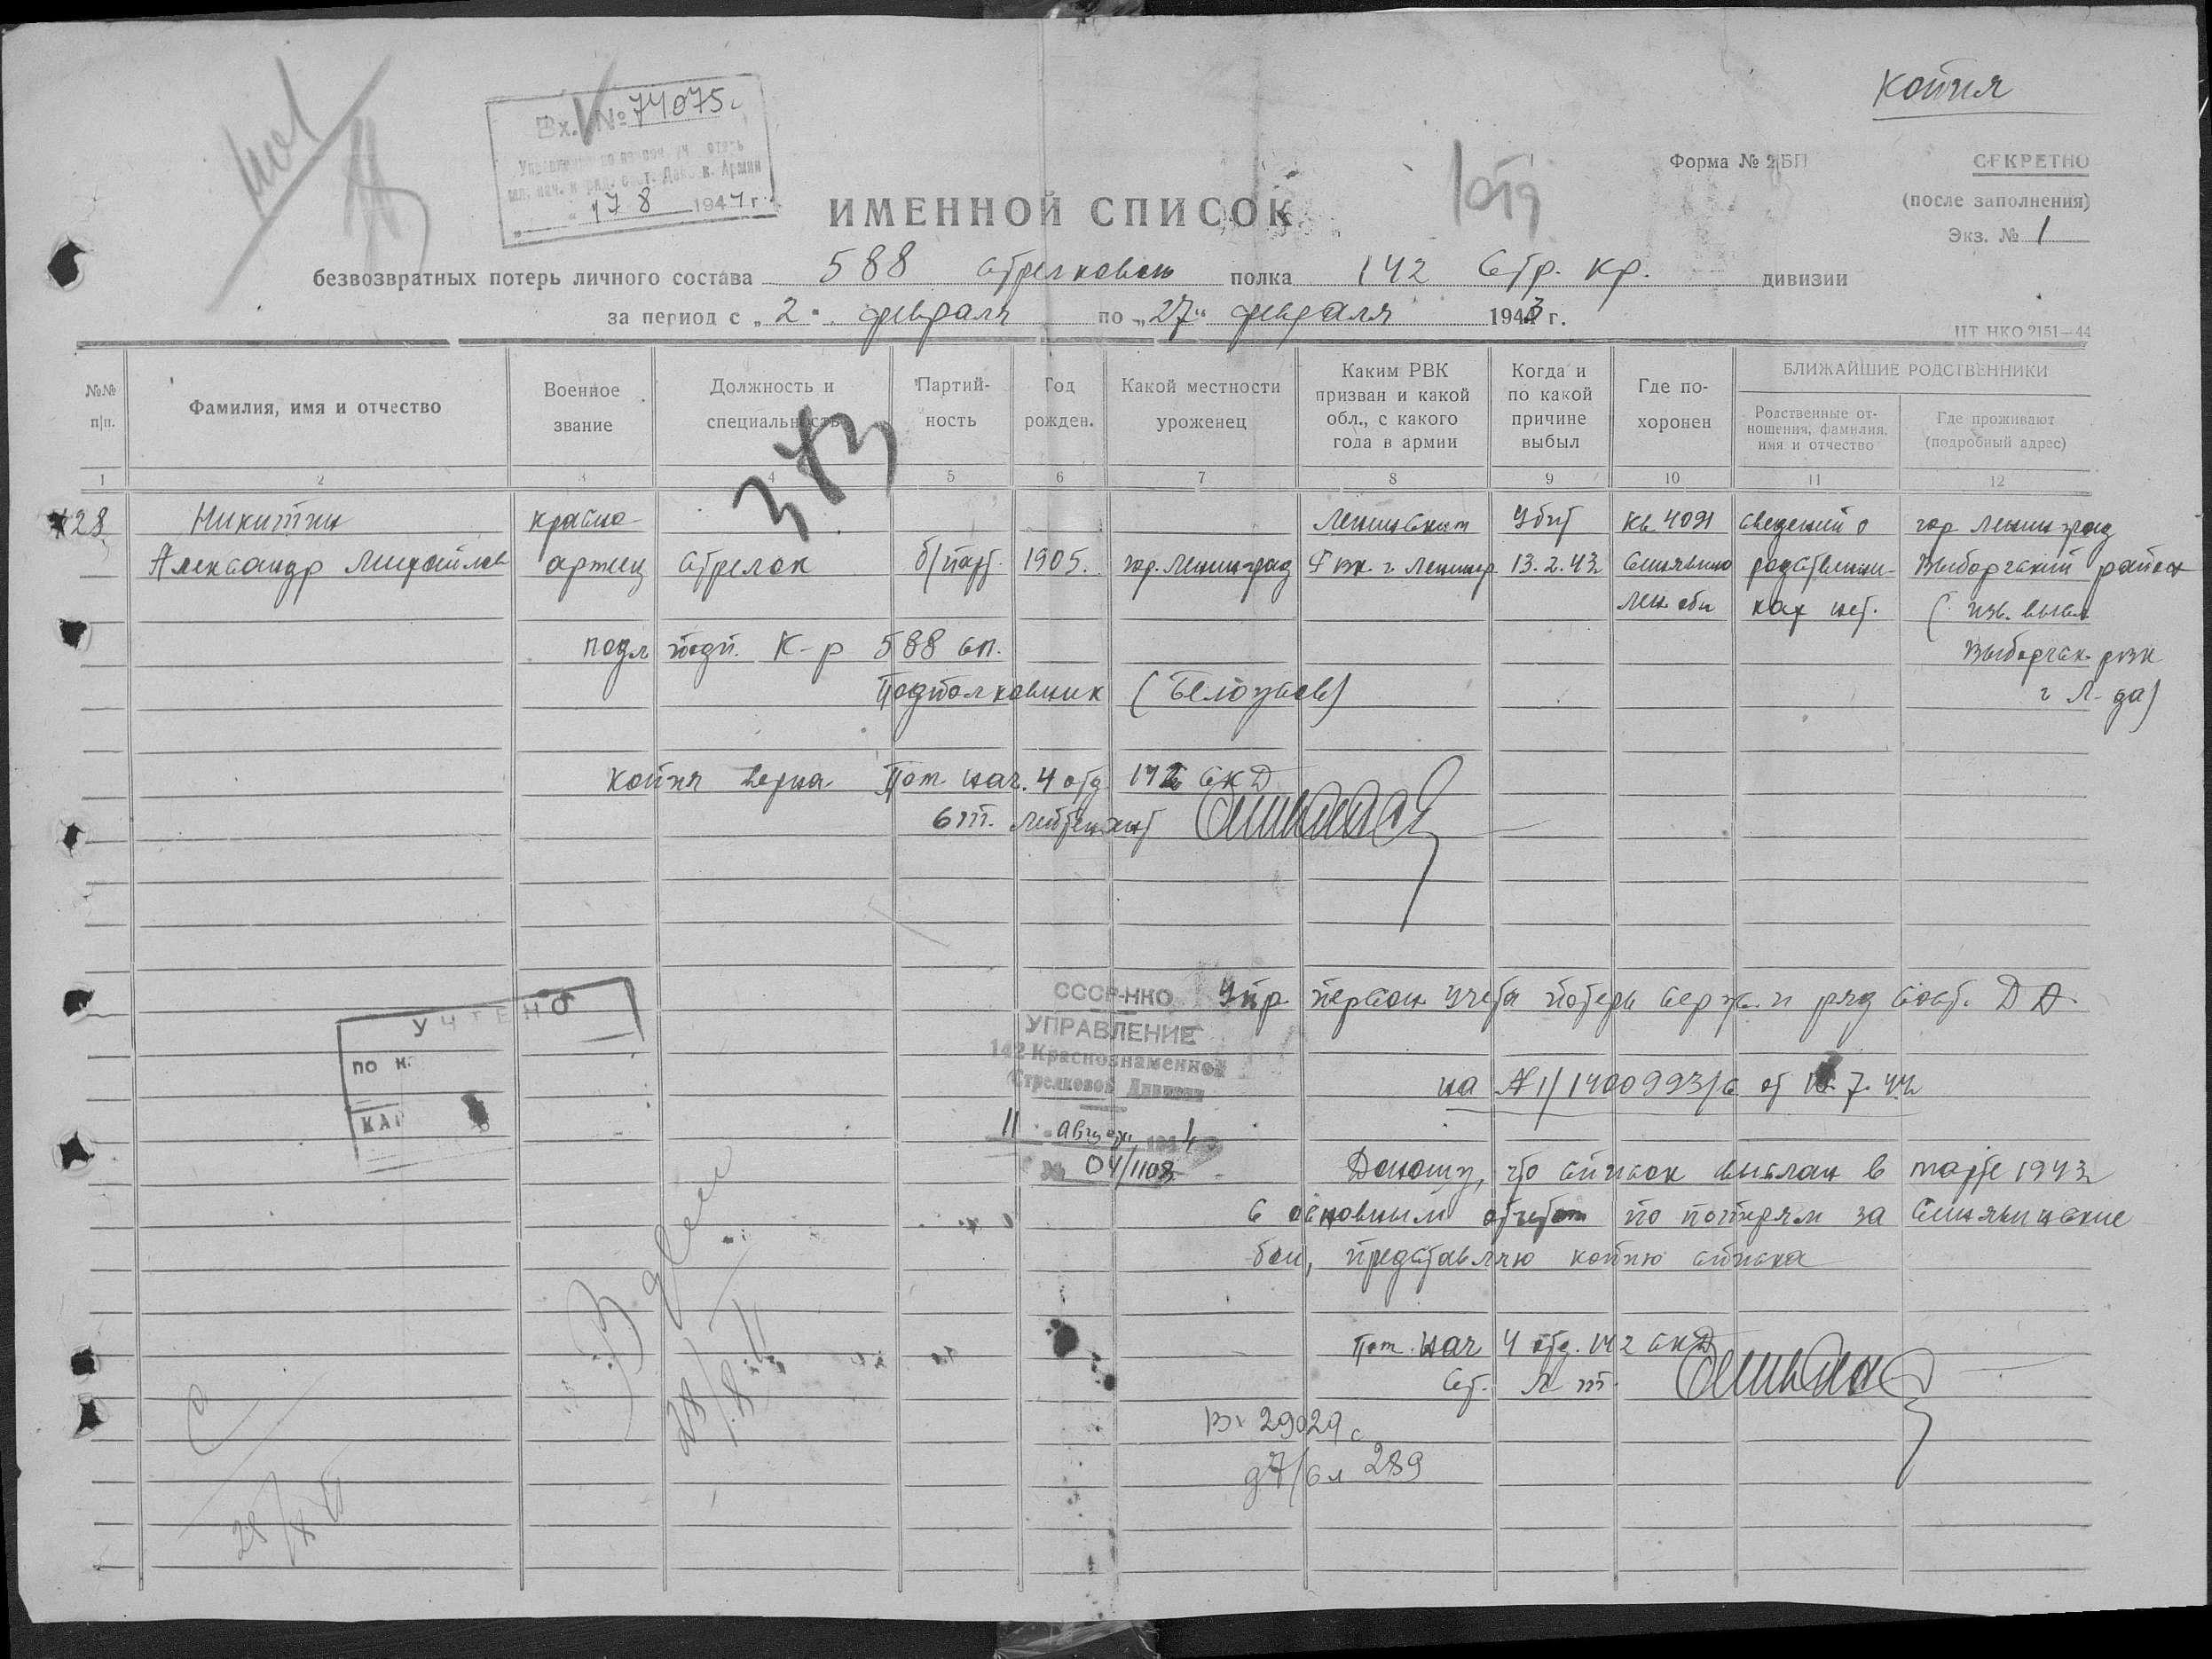 Копия
Вх. № 74075с
17 8 1944 г.
Форма № 2 БП
СЕКРЕТНО
(после заполнения)
Экз. № 1
ИМЕННОЙ СПИСОК
безвозвратных потерь личного состава 588 стрелкового полка 142 Стр. кр. дивизии
за период с „2" февраля по „27" февраля 1943 г.
ЦТ НКО 2151—44
№№ п/п.
Фамилия, имя и отчество
Военное звание
Должность и специальность
Партийность
Год рожден.
Какой местности уроженец
Каким РВК призван и какой обл., с какого года в армии
Когда и по какой причине выбыл
Где похоронен
БЛИЖАЙШИЕ РОДСТВЕННИКИ
Родственные отношения, фамилия, имя и отчество
Где проживают (подробный адрес)
1 2 3 4 5 6 7 8 9 10 11 12
373
28 Никитин красно- Ленинским Убит кв. 4091 сведений о гор Ленинград
Александр Михайлов армеец стрелок б/парт. 1905. гор. Ленинград РВК г Ленингр 13.2.43 Синявино родственни- Выборгский район
Лен обл ках нет. ( изв. высл
подл подп. К-р 588 сп. Выборгск. рвк
Подполковник (Белоусов) г Л-да)
Копия верна Пом нач. 4 отд 142 СКД
ст. лейтенант
УЧТЕНО
ПО К.
КАР
СССР-НКО
УПРАВЛЕНИЕ
142 Краснознаменной
Стрелковой Дивизии
11 август 1944
№ 04/1108
Упр персон учета потерь серж. и ряд сост. ДА
на № 1/1400993/с от 7.44
Доношу, что список выслан в марте 1943
с основным отчетом по потерям за Синявинские
бои, представляю копию списка
Пом. нач 4 отд. 142 СКД
Ст. Л-т.
Вх 29029с
д7/6 л 289